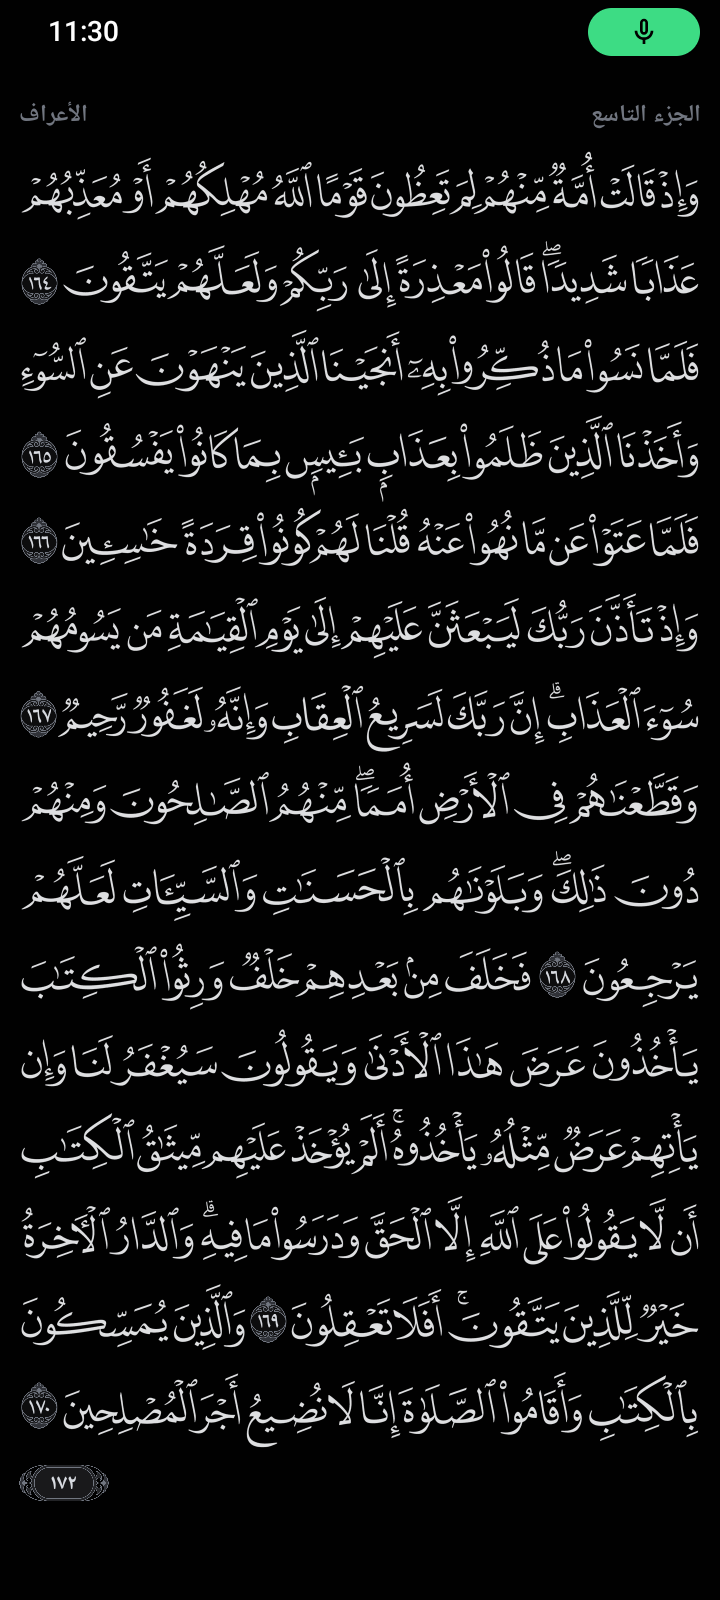 11:30
الجزء التاسع
الأعراف
وَإِذۡ قَالَتۡ أُمَّةٞ مِّنۡهُمۡ لِمَ تَعِظُونَ قَوۡمًا ٱللَّهُ مُهۡلِكُهُمۡ أَوۡ مُعَذِّبُهُمۡ
عَذَابٗا شَدِيدٗاۖ قَالُواْ مَعۡذِرَةً إِلَىٰ رَبِّكُمۡ وَلَعَلَّهُمۡ يَتَّقُونَ ١٦٤
فَلَمَّا نَسُواْ مَا ذُكِّرُواْ بِهِۦٓ أَنجَيۡنَا ٱلَّذِينَ يَنۡهَوۡنَ عَنِ ٱلسُّوٓءِ
وَأَخَذۡنَا ٱلَّذِينَ ظَلَمُواْ بِعَذَابِۭ بَـِٔيسِۭ بِمَا كَانُواْ يَفۡسُقُونَ ١٦٥
فَلَمَّا عَتَوۡاْ عَن مَّا نُهُواْ عَنۡهُ قُلۡنَا لَهُمۡ كُونُواْ قِرَدَةً خَٰسِـِٔينَ ١٦٦
وَإِذۡ تَأَذَّنَ رَبُّكَ لَيَبۡعَثَنَّ عَلَيۡهِمۡ إِلَىٰ يَوۡمِ ٱلۡقِيَٰمَةِ مَن يَسُومُهُمۡ
سُوٓءَ ٱلۡعَذَابِۗ إِنَّ رَبَّكَ لَسَرِيعُ ٱلۡعِقَابِ وَإِنَّهُۥ لَغَفُورٞ رَّحِيمٞ ١٦٧
وَقَطَّعۡنَٰهُمۡ فِي ٱلۡأَرۡضِ أُمَمٗاۖ مِّنۡهُمُ ٱلصَّٰلِحُونَ وَمِنۡهُمۡ
دُونَ ذَٰلِكَۖ وَبَلَوۡنَٰهُم بِٱلۡحَسَنَٰتِ وَٱلسَّيِّـَٔاتِ لَعَلَّهُمۡ
يَرۡجِعُونَ ١٦٨ فَخَلَفَ مِنۢ بَعۡدِهِمۡ خَلۡفٞ وَرِثُواْ ٱلۡكِتَٰبَ
يَأۡخُذُونَ عَرَضَ هَٰذَا ٱلۡأَدۡنَىٰ وَيَقُولُونَ سَيُغۡفَرُ لَنَا وَإِن
يَأۡتِهِمۡ عَرَضٞ مِّثۡلُهُۥ يَأۡخُذُوهُۚ أَلَمۡ يُؤۡخَذۡ عَلَيۡهِم مِّيثَٰقُ ٱلۡكِتَٰبِ
أَن لَّا يَقُولُواْ عَلَى ٱللَّهِ إِلَّا ٱلۡحَقَّ وَدَرَسُواْ مَا فِيهِۗ وَٱلدَّارُ ٱلۡأٓخِرَةُ
خَيۡرٞ لِّلَّذِينَ يَتَّقُونَۚ أَفَلَا تَعۡقِلُونَ ١٦٩ وَٱلَّذِينَ يُمَسِّكُونَ
بِٱلۡكِتَٰبِ وَأَقَامُواْ ٱلصَّلَوٰةَ إِنَّا لَا نُضِيعُ أَجۡرَ ٱلۡمُصۡلِحِينَ ١٧٠
١٧٢